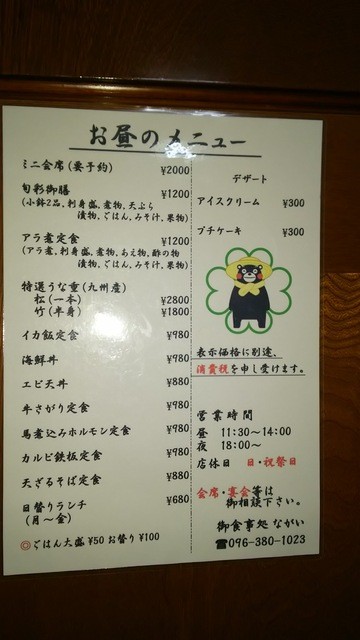 お昼のメニュー
ミニ会席(要予約) ¥2000
旬彩御膳 ¥1200
(小鉢2品,刺身盛,煮物,天ぷら
漬物,ごはん,みそ汁,果物)
アラ煮定食 ¥1200
(アラ煮,刺身盛,煮物,あえ物,酢の物
漬物,ごはん,みそ汁,果物)
特選うな重(九州産)
松(一本) ¥2800
竹(半身) ¥1800
イカ飯定食 ¥980
海鮮丼 ¥980
エビ天丼 ¥880
牛さがり定食 ¥980
馬煮込みホルモン定食 ¥980
カルビ鉄板定食 ¥980
天ざるそば定食 ¥880
日替りランチ ¥680
(月〜金)
◎ごはん大盛 ¥50 お替り ¥100
デザート
アイスクリーム ¥300
プチケーキ ¥300
表示価格に別途、
消費税を申し受けます。
営業時間
昼 11:30〜14:00
夜 18:00〜
店休日 日・祝祭日
会席・宴会等は
御相談下さい。
御食事処 ながい
☎096-380-1023